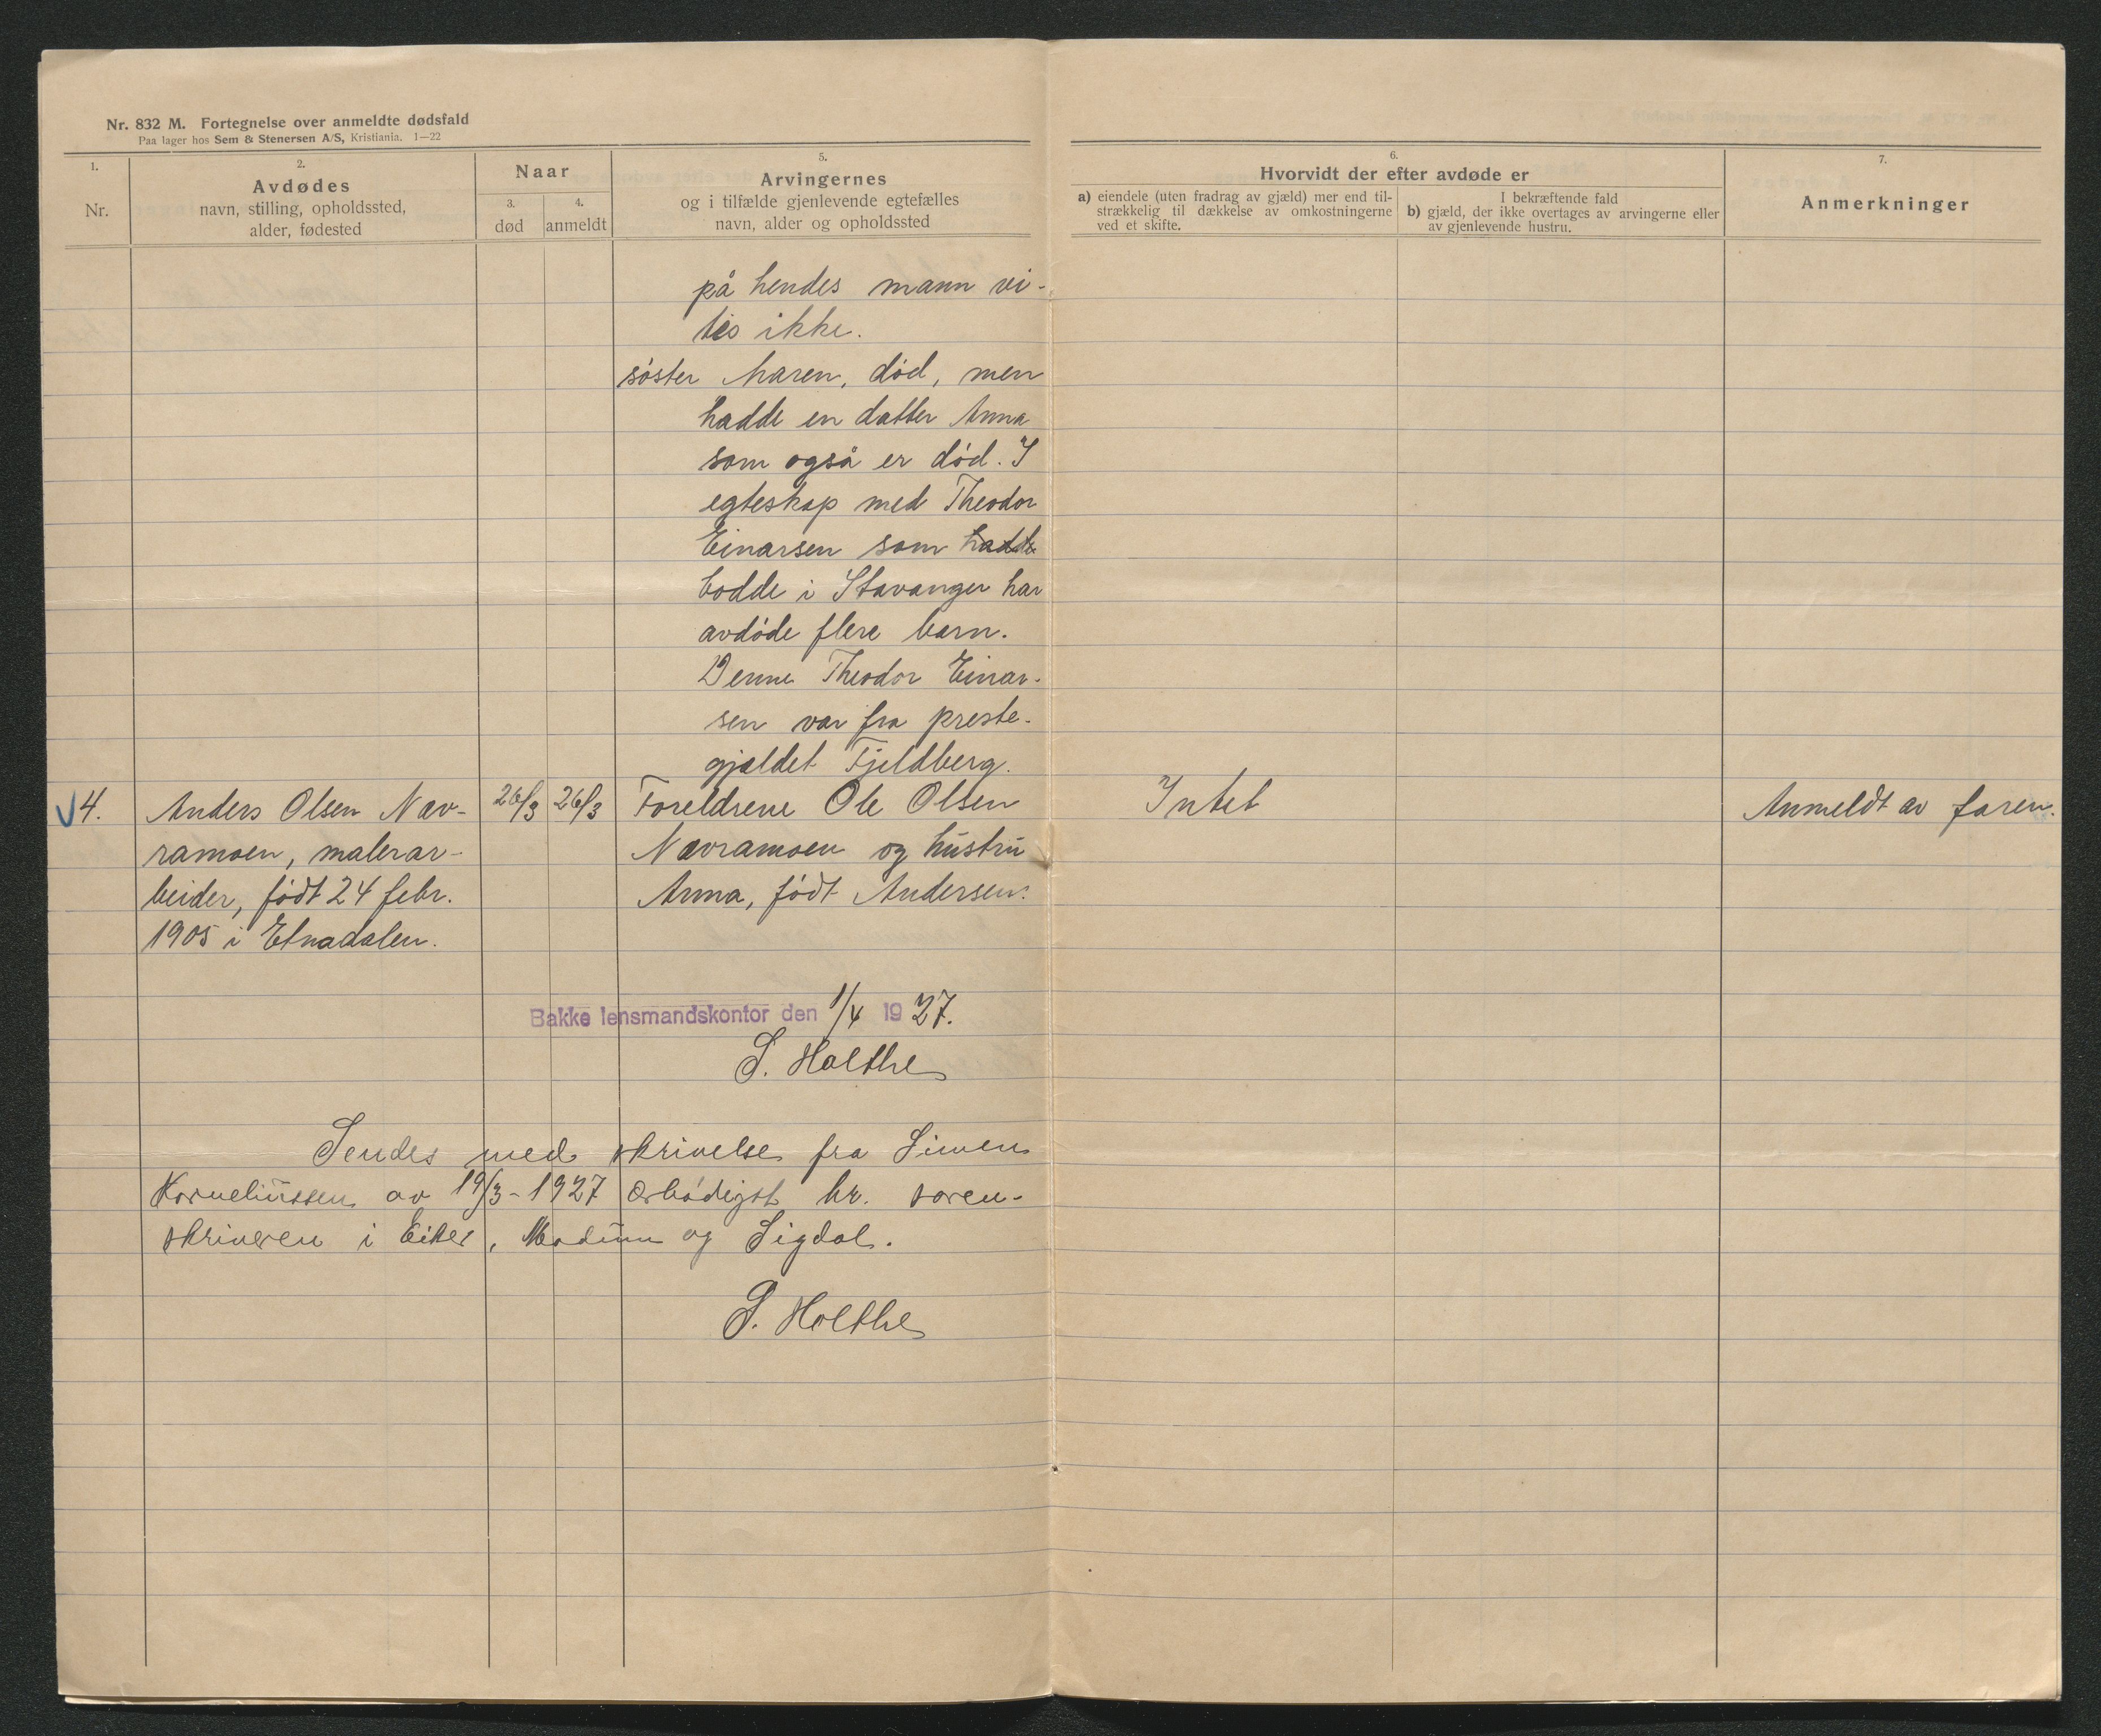 Nr. 832 M. Fortegnelse over anmeldte dødsfald
Paa lager hos Sem & Stenersen A/S, Kristiania. 1—22
1.
Nr.
2.
Avdødes
navn, stilling, opholdssted,
alder, fødested
Naar
3.
død
4.
anmeldt
5.
Arvingernes
og i tilfælde gjenlevende egtefælles
navn, alder og opholdssted
6.
Hvorvidt der efter avdøde er
a) eiendele (uten fradrag av gjæld) mer end til-
strækkelig til dækkelse av omkostningerne
ved et skifte.
I bekræftende fald
b) gjæld, der ikke overtages av arvingerne eller
av gjenlevende hustru.
7.
Anmerkninger
på hendes mann vi-
tes ikke.
søster Maren, død, men
hadde en datter Anna
som også er død. I
egteskap med Theodor
Einarsen som hadde
bodde i Stavanger har
avdøde flere barn.
Denne Theodor Einar-
sen var fra preste-
gjeldet Fjeldberg.
4. Anders Olsen Nav- 26/3 26/3 Foreldrene Ole Olsen Intet Anmeldt av faren.
ramoen, malerar- Navramoen og hustru
beider, født 24 febr. Anna, født Andersen.
1905 i Etnadalen.
Bakke lensmandskontor den 1/4 1927.
S. Holthe
Sendes med skrivelse fra Simen
Korneliussen av 19/3-1927 ærbødigst hr. soren-
skriveren i Eiker, Modum og Sigdal.
S. Holthe